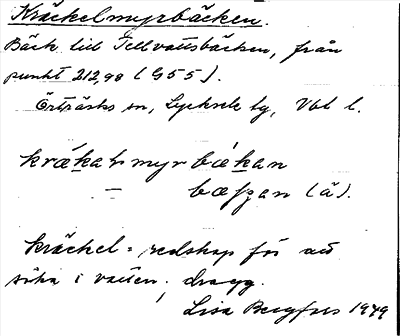 Kräckelmyrbäcken.
Bäck till Tellvattsbäcken, från
punkt 212,98 (G55).
Örträsks sn, Lycksele tg, Vbl l.
kräkaḷmyrbækan
– bæſzan (ä).
kräckel = redskap för att
söka i vatten, dragg.
Lisa Bergfors 1949